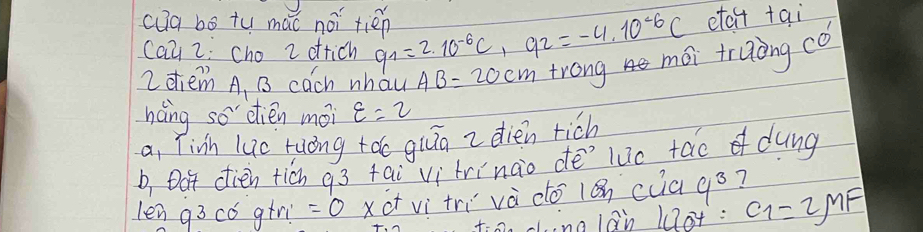 của bộ tụ mắc nối tiếp
Câu 2: Cho 2 đtích q1 = 2.10⁻⁶C, q2 = -4.10⁻⁶C đặt tại
2 điểm A, B cách nhau AB = 20cm trong môi trường có
hằng số điện môi ε = 2
a, Tính lực tương tác giữa 2 điện tích
b, Đặt điện tích q3 tại vị trí nào để lực tác dụng
lên q3 có gtrị = 0 xđ vị trí và độ lớn của q3?
lần lượt : C1 = 2MF